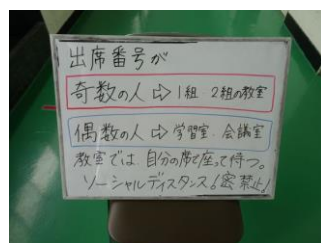 出席番号が
奇数の人 ⇨ 1組 2組の教室
偶数の人 ⇨ 学習室．会議室
教室では 自分の席で座って待つ。
ソーシャルディスタンス！密禁止！